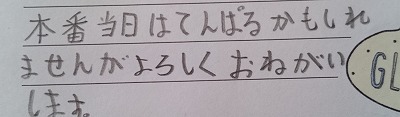 本番当日はてんぱるかもしれ
ませんがよろしくおねがい
します。
GL